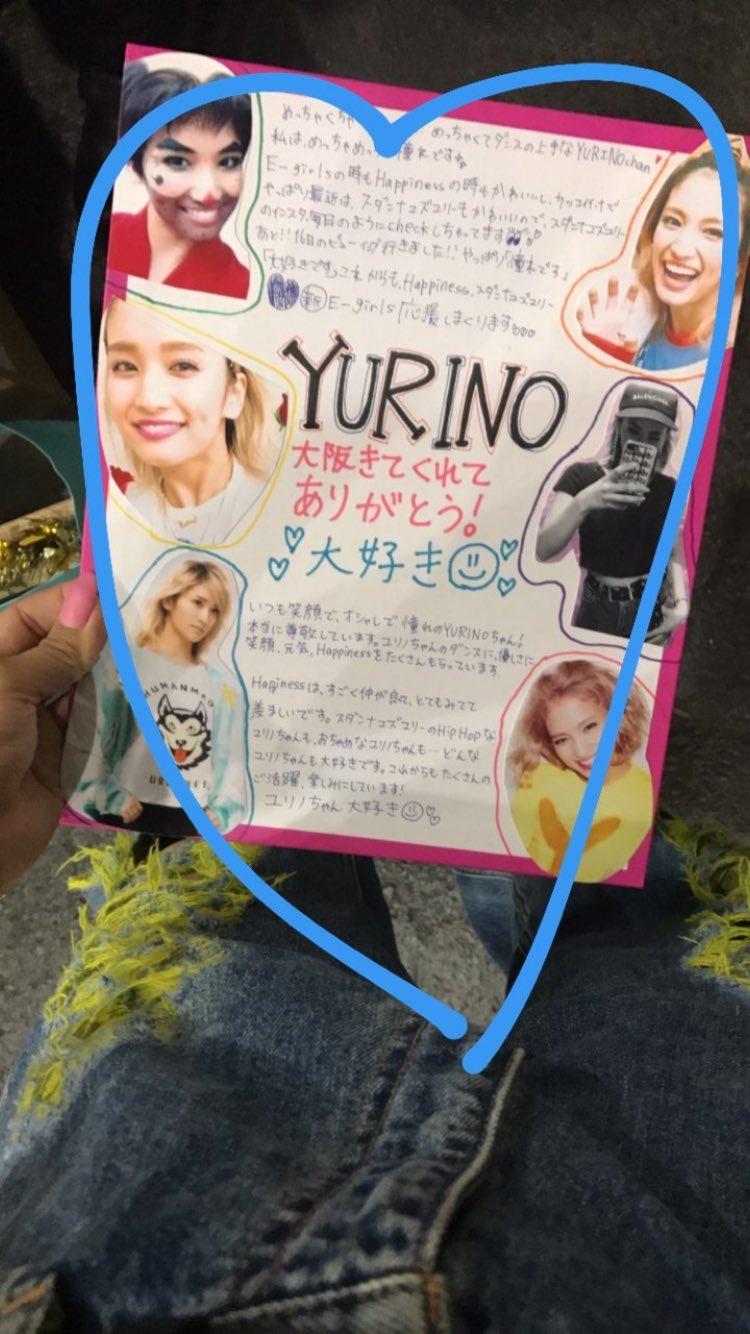 めっちゃくちゃ めっちゃくてダンスの上手なYURINOchan
私は、めっちゃめっ 憧れです
E-girlsの時もHappinessの時もかわいいし、カッコイイけど
やっぱり最近は、スダンナユズユリーもかわいいので、スダンナユズユリー
のインスタ、毎日のようにcheckしちゃってます
あと!! 16日のビューイング行きました!! やっぱり「憧れです」
「大好きです」これからも、Happiness、スダンナユズユリー
新 E-girls「応援」しまくります♡♡♡
YURINO
大阪きてくれて
ありがとう!
大好き
BALENCIAGA
いつも笑顔で、オシャレで憧れのYURINOちゃん!
本当に尊敬しています。ユリノちゃんのダンスに、優しさに
笑顔、元気、Happinessをたくさんもらっています
Happinessは、すごく仲が良くて、とてもみてて
羨ましいです。スダンナユズユリーのHip Hopな
ユリノちゃんも、おちゃめなユリノちゃんも…どんな
ユリノちゃんも大好きです。これからもたくさんの
ご活躍、楽しみにしています!
ユリノちゃん 大好き
HUMANMAD